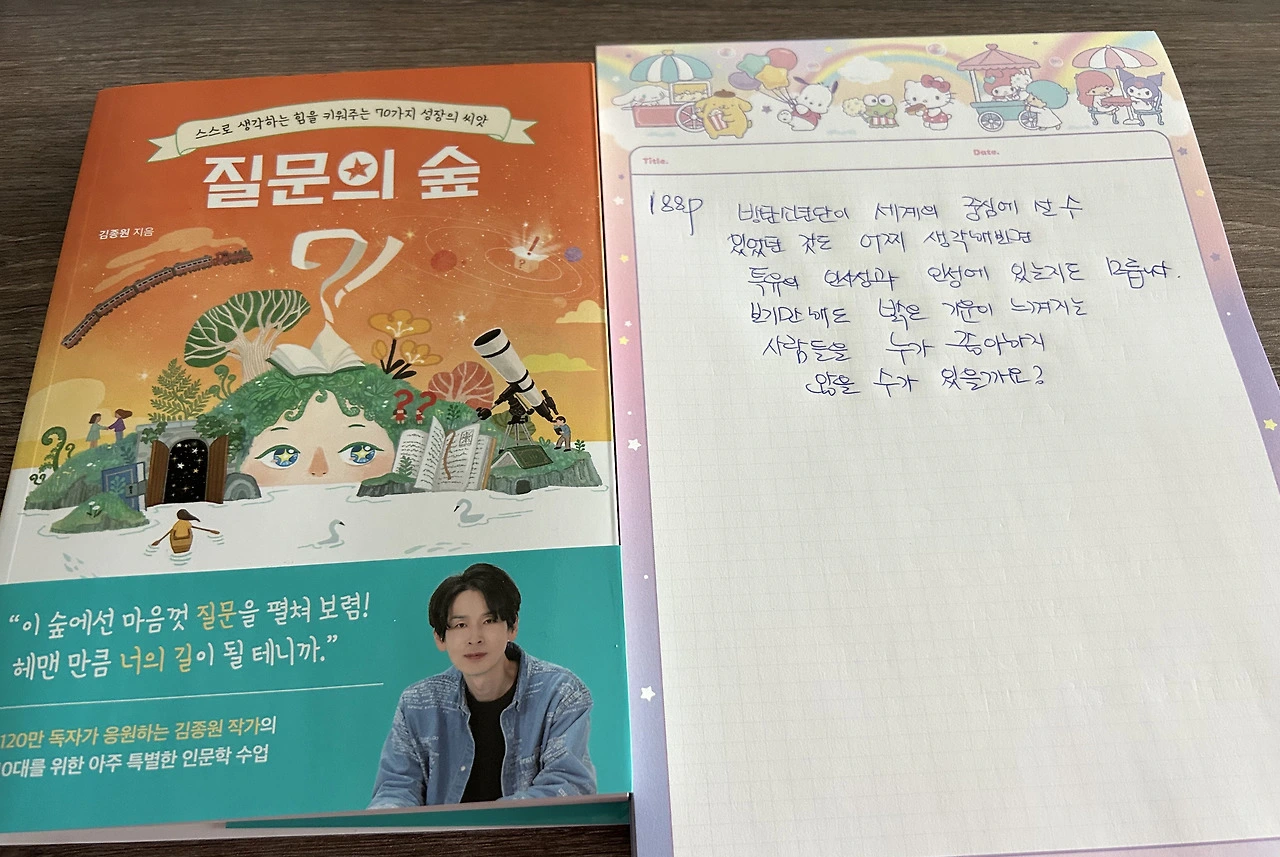 스스로 생각하는 힘을 키워주는 70가지 성장의 씨앗
질문의 숲
김종원 지음
??
“이 숲에선 마음껏 질문을 펼쳐 보렴!
헤맨 만큼 너의 길이 될 테니까.”
120만 독자가 응원하는 김종원 작가의
10대를 위한 아주 특별한 인문학 수업
Title.
Date.
188p 방탄소년단이 세계의 중심에 설 수
있었던 것도 어찌 생각해보면
특유의 인사성과 인성에 있는지도 모릅니다.
보기만 해도 밝은 기운이 느껴지는
사람들을 누가 좋아하지
않을 수가 있을까요?